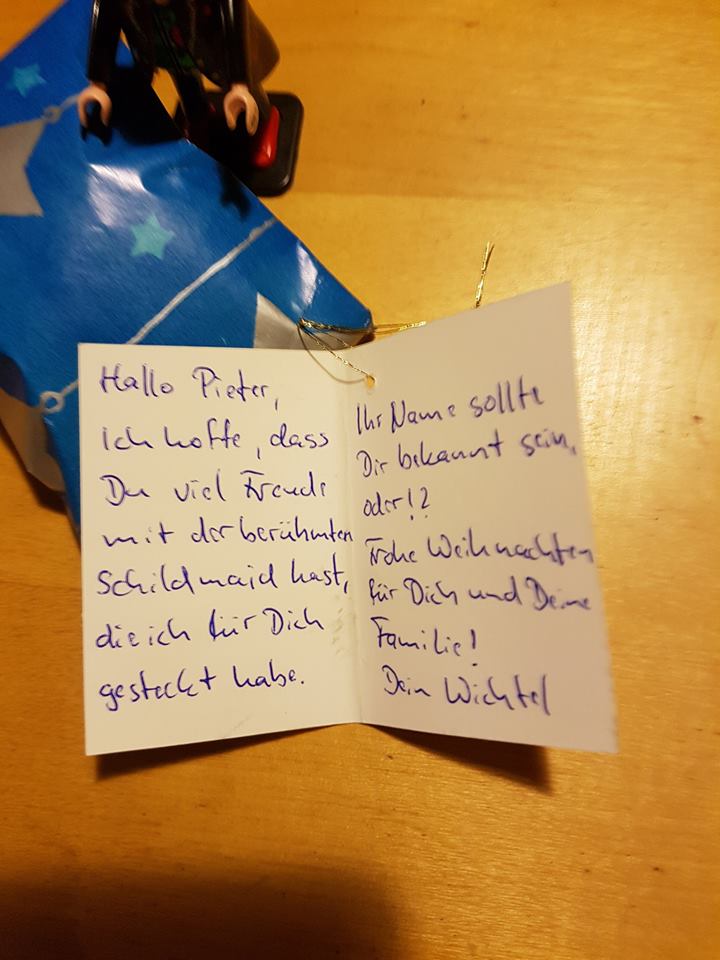 Hallo Pieter,
ich hoffe, dass
Du viel Freude
mit der berühmten
Schildmaid hast,
die ich für Dich
gesteckt habe.
Ihr Name sollte
Dir bekannt sein,
oder!?
Frohe Weihnachten
für Dich und Deine
Familie!
Dein Wichtel